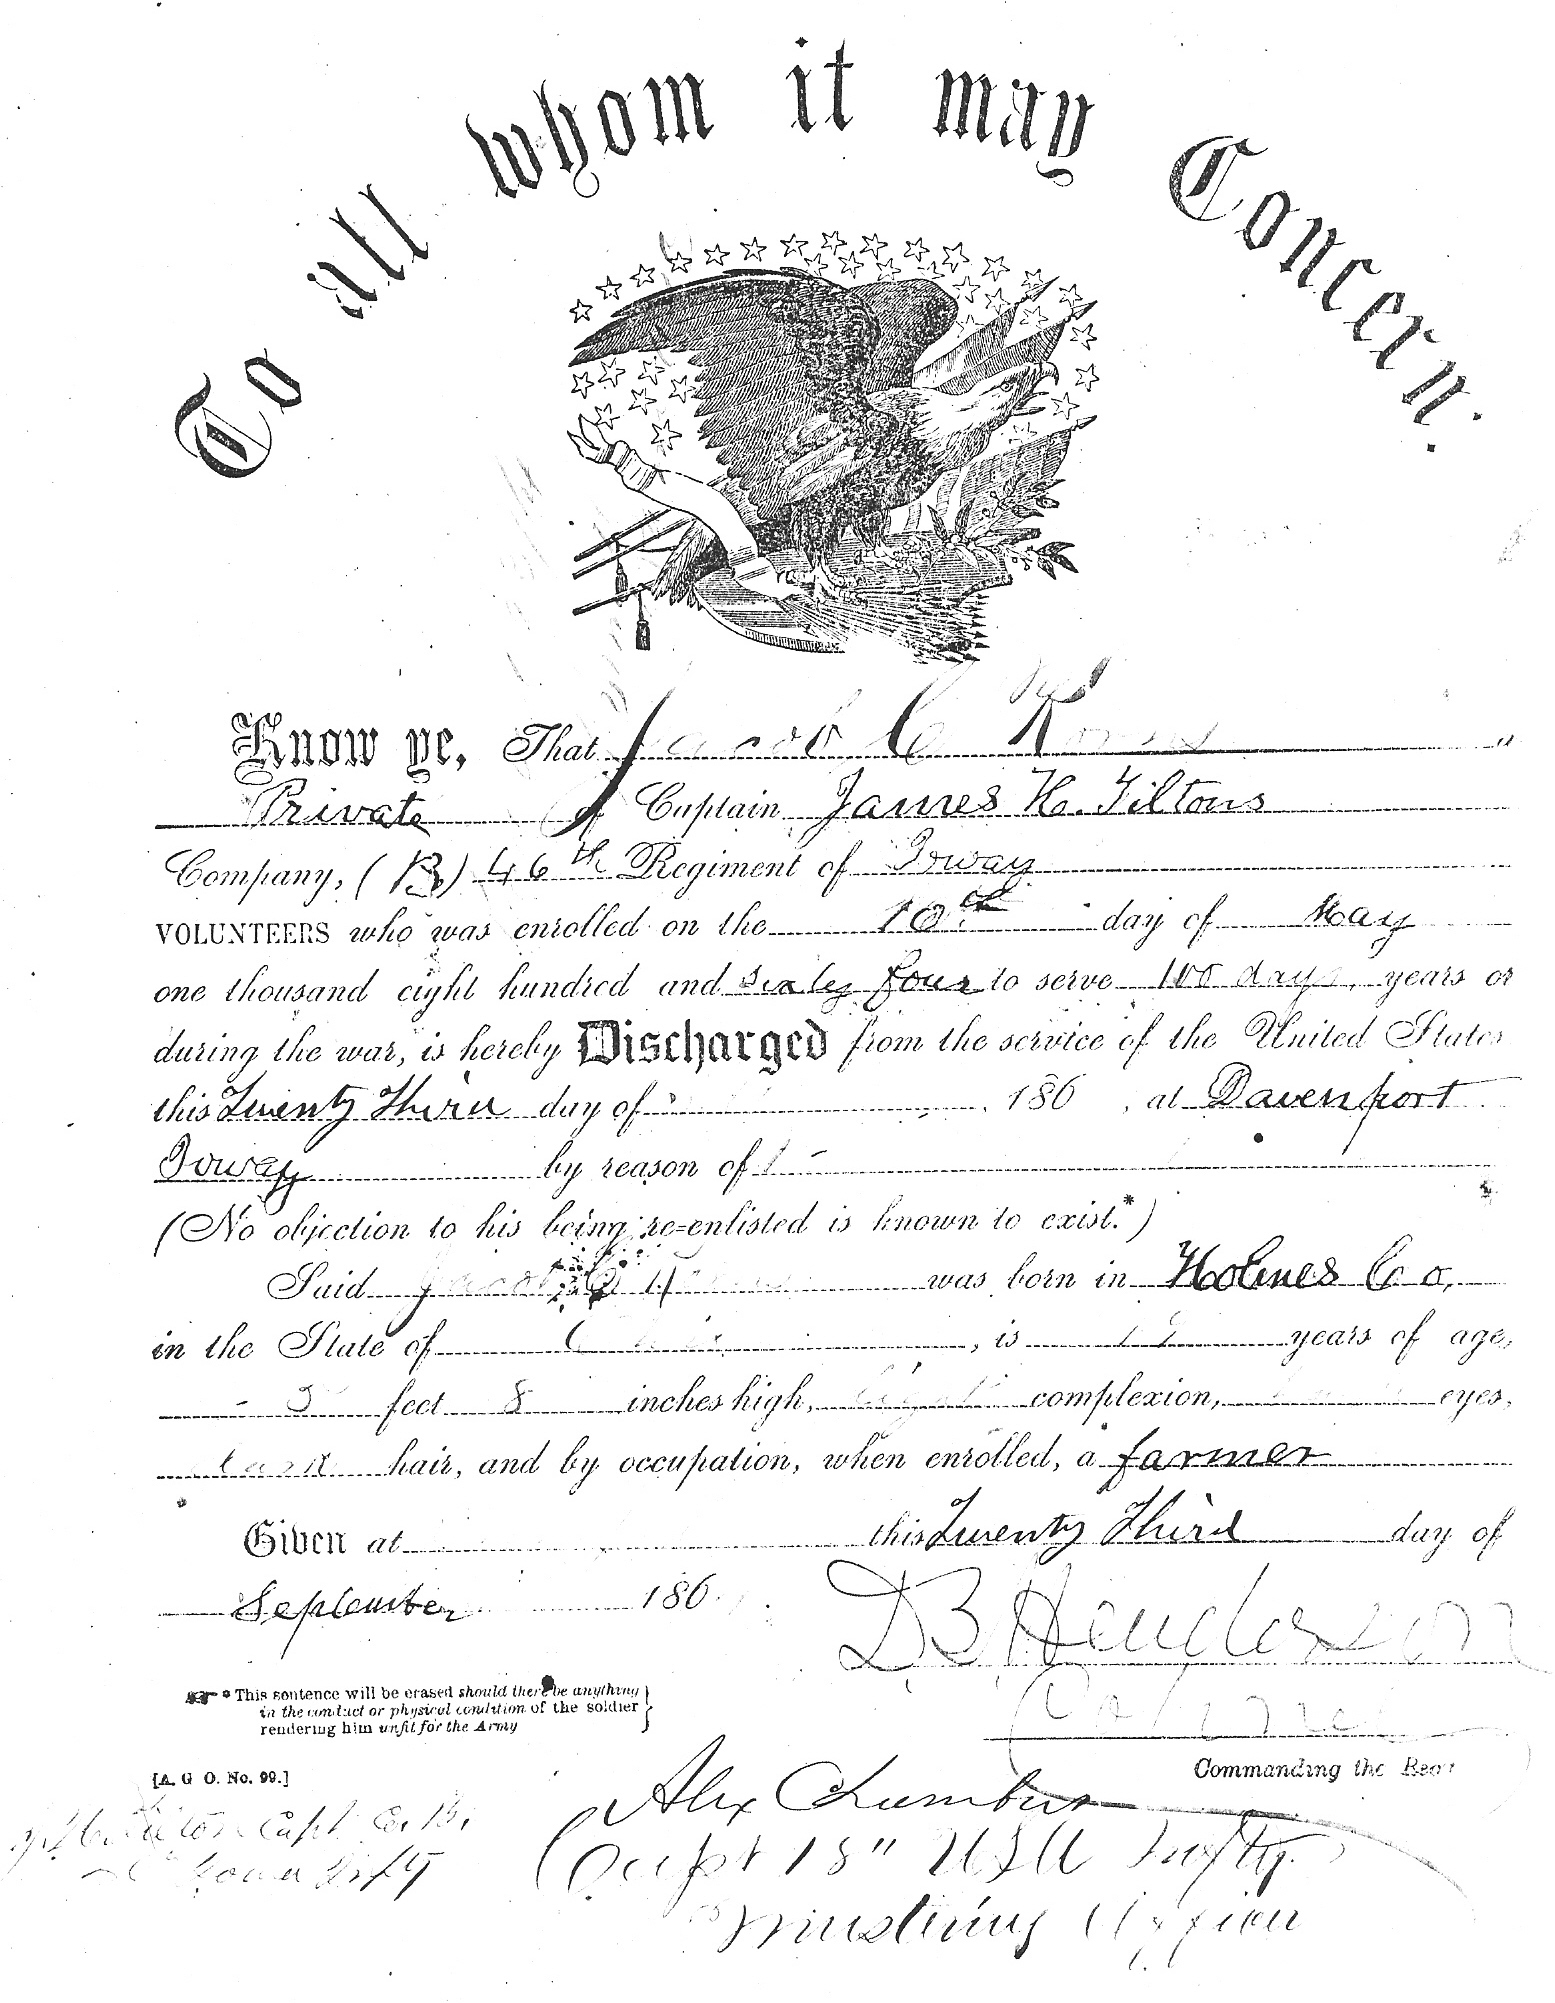 To all whom it may Concern.
Know ye, That Jacob C
Private of Captain James H. Tiltons
Company, (B) 46th Regiment of Ioway
VOLUNTEERS who was enrolled on the 10th day of May
one thousand eight hundred and sixty four to serve 100 days, years or
during the war, is hereby Discharged from the service of the United States
this Twenty Third day of 186 , at Davenport
Ioway by reason of
(No objection to his being re-enlisted is known to exist.*)
Said Jacob C was born in Holmes Co.
in the State of Ohio, is years of age,
5 feet 8 inches high, light complexion, eyes,
dark hair, and by occupation, when enrolled, a farmer
Given at this Twenty Third day of
September 186
D B Henderson
Colonel
* This sentence will be erased should there be anything
in the conduct or physical condition of the soldier
rendering him unfit for the Army
Commanding the Reg't
[A. G. O. No. 99.]
Alex
Capt Co. B,
Capt 18" USA Infty
Iowa Infty
Mustering Officer